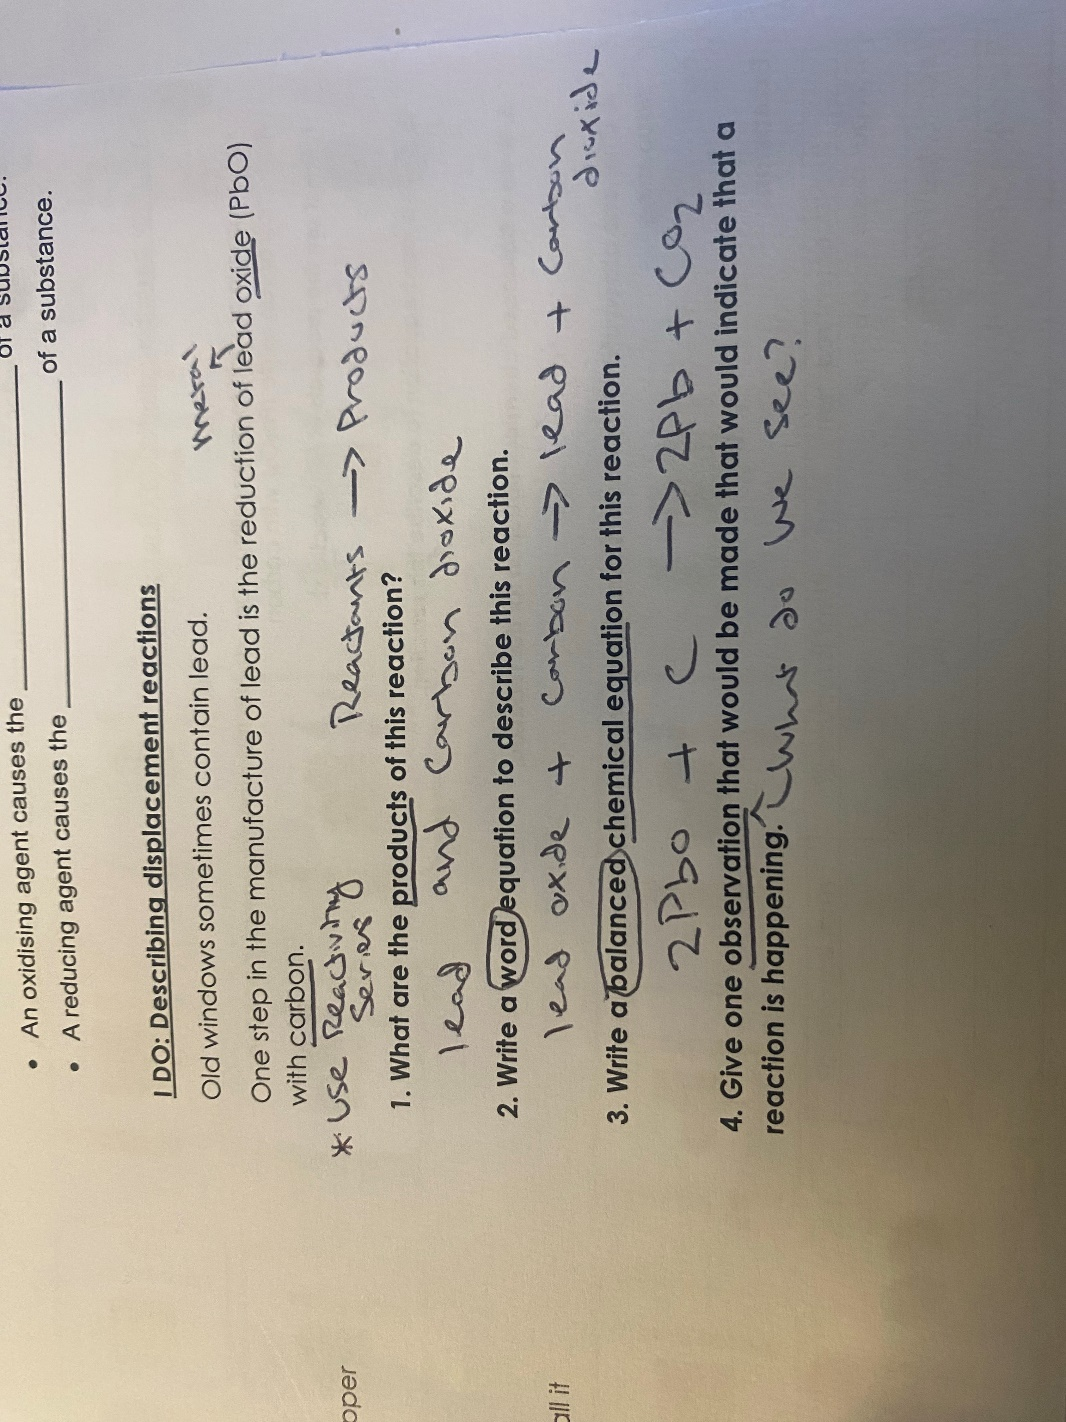 of a substance.
• An oxidising agent causes the
• A reducing agent causes the of a substance.
I DO: Describing displacement reactions
Old windows sometimes contain lead.
metal
One step in the manufacture of lead is the reduction of lead oxide (PbO)
with carbon.
* Use Reactivity Series
Reactants → Products
1. What are the products of this reaction?
lead and Carbon dioxide
2. Write a word equation to describe this reaction.
lead oxide + carbon → lead + Carbon
dioxide
3. Write a balanced chemical equation for this reaction.
2PbO + C → 2Pb + CO2
4. Give one observation that would be made that would indicate that a
reaction is happening.
what do we see?
all it